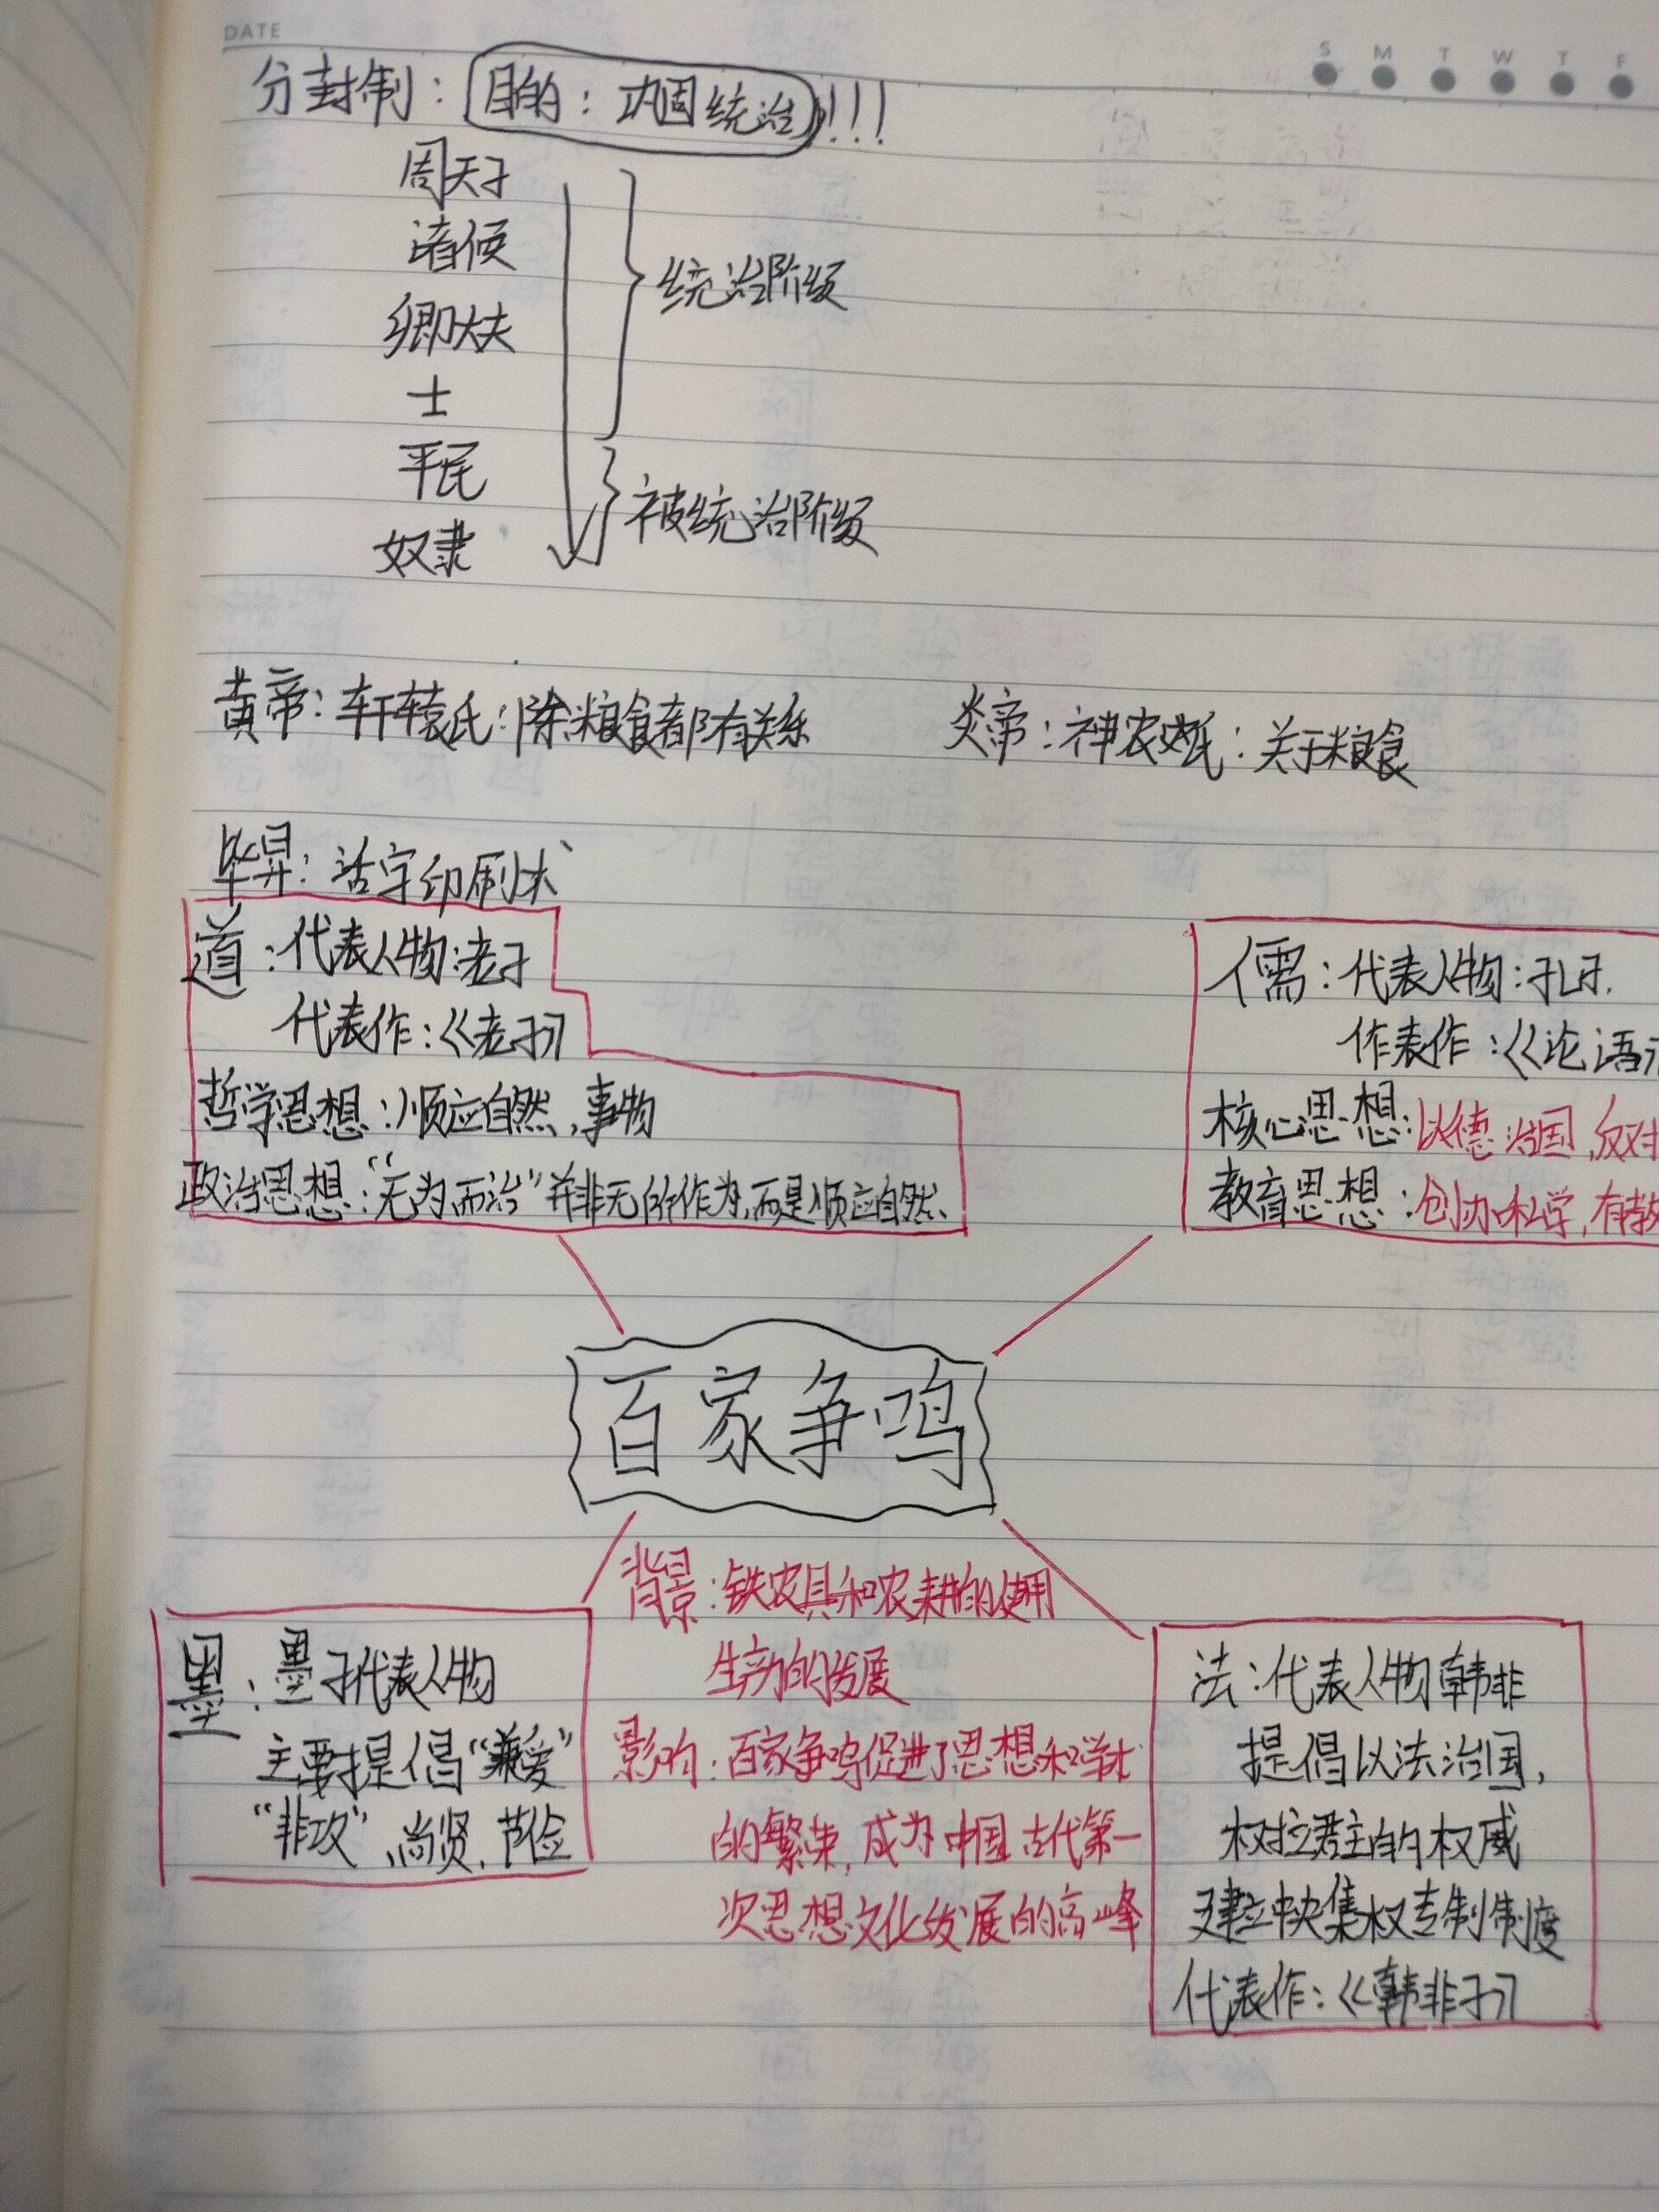 DATE
S M T W T F
分封制：目的：巩固统治!!!
周天子
诸侯
卿大夫
士
统治阶级
平民
奴隶
被统治阶级
黄帝：轩辕氏：除粮食都有关系
炎帝：神农氏：关于粮食
毕昇：活字印刷术
道：代表人物：老子
代表作：《老子》
哲学思想：顺应自然、事物
政治思想：“无为而治”并非无所作为，而是顺应自然、
儒：代表人物：孔子.
作表作：《论语》
核心思想：以德治国，反对
教育思想：创办私学，有教
百家争鸣
背景：铁农具和农耕的使用
生产力的发展
影响：百家争鸣促进了思想和学术
的繁荣，成为中国古代第一
次思想文化发展的高峰
墨：墨子代表人物
主要提倡“兼爱”
“非攻”、尚贤、节俭
法：代表人物韩非
提倡以法治国，
权拉君主的权威
建立中央集权专制制度
代表作：《韩非子》